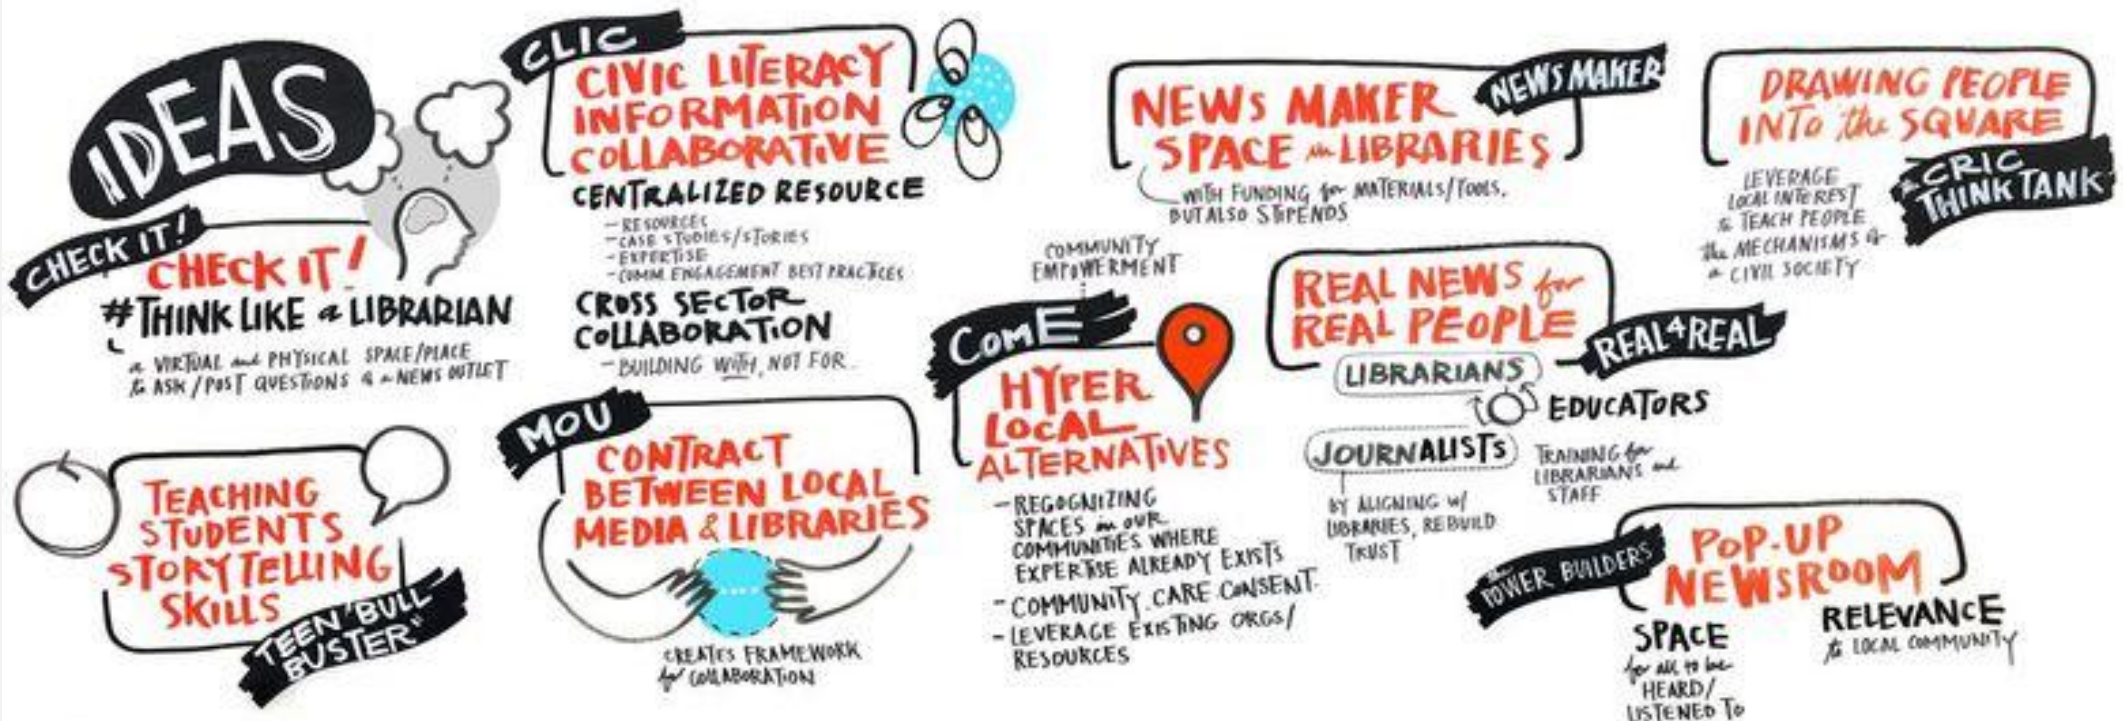 IDEAS
CHECK IT!
CHECK IT!
#THINK LIKE a LIBRARIAN
a VIRTUAL and PHYSICAL SPACE/PLACE
to ASK/POST QUESTIONS of a NEWS OUTLET
TEACHING
STUDENTS
STORYTELLING
SKILLS
TEEN "BULL
BUSTER"
CLIC
CIVIC LITERACY
INFORMATION
COLLABORATIVE
CENTRALIZED RESOURCE
- RESOURCES
- CASE STUDIES/STORIES
- EXPERTISE
- COMM ENGAGEMENT BEST PRACTICES
CROSS SECTOR
COLLABORATION
- BUILDING WITH, NOT FOR.
MOU
CONTRACT
BETWEEN LOCAL
MEDIA & LIBRARIES
CREATES FRAMEWORK
for COLLABORATION
COMMUNITY
EMPOWERMENT
COME
HYPER
LOCAL
ALTERNATIVES
- RECOGNIZING
SPACES in OUR
COMMUNITIES WHERE
EXPERTISE ALREADY EXISTS
- COMMUNITY. CARE. CONSENT.
- LEVERAGE EXISTING ORGS/
RESOURCES
NEWS MAKER
NEWS MAKER
SPACE in LIBRARIES
WITH FUNDING for MATERIALS/TOOLS,
BUT ALSO STIPENDS
REAL NEWS for
REAL PEOPLE
REAL4REAL
LIBRARIANS
EDUCATORS
JOURNALISTS
BY ALIGNING w/
LIBRARIES, REBUILD
TRUST
TRAINING for
LIBRARIANS and
STAFF
DRAWING PEOPLE
INTO the SQUARE
the CRIC
THINK TANK
LEVERAGE
LOCAL INTEREST
to TEACH PEOPLE
the MECHANISMS of
a CIVIL SOCIETY
the POWER BUILDERS
POP-UP
NEWSROOM
SPACE
for all to be
HEARD/
LISTENED TO
RELEVANCE
to LOCAL COMMUNITY